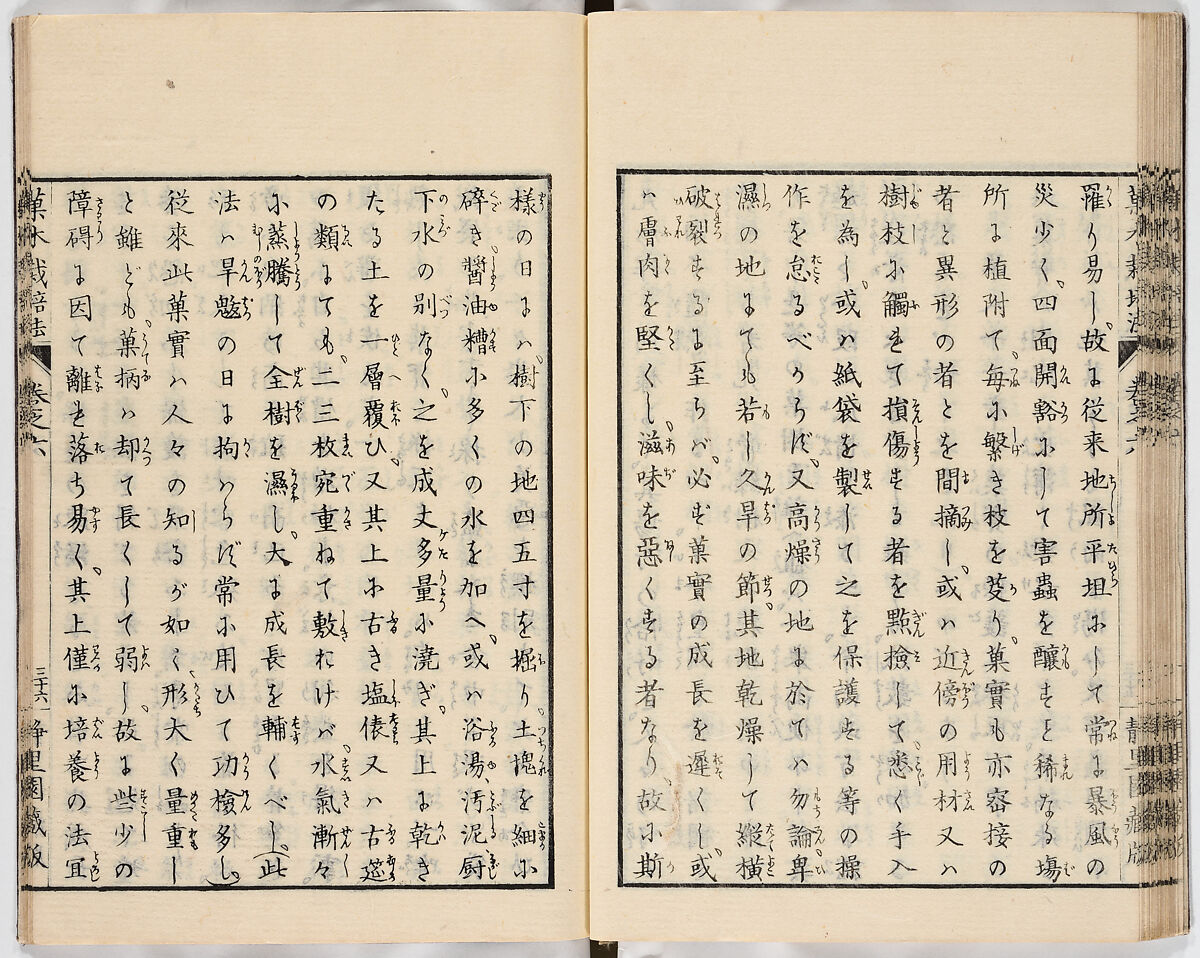 罹り易し、故に従来地所平坦にして常に暴風の
災少く、四面開豁にして害蟲を釀すと稀なる塲
所に植附て、毎に繁き枝を芟り、菓實も亦密接の
者と異形の者とを間摘し、或ハ近傍の用材又ハ
樹枝に觸れて損傷する者を點撿して悉く手入
を為し、或ハ紙袋を製して之を保護する等の操
作を怠るべからず、又高燥の地に於てハ勿論卑
濕の地にても若し久旱の節其地乾燥して縱横
破裂するに至らバ、必ず菓實の成長を遲くし、或
ハ膚肉を堅くし滋味を惡くする者なり、故に斯
様の日にハ、樹下の地四五寸を掘り、土塊を細に
碎き、醤油糟に多くの水を加へ、或ハ浴湯、汚泥、厨
下水の別なく、之を成丈多量に澆ぎ、其上に乾き
たる土を一層覆ひ、又其上に古き塩俵又ハ古莚
の類にても、二三枚宛重ねて敷おけバ、水氣漸々
に蒸騰して全樹を濕し、大に成長を輔くべし、(此
法ハ旱魃の日に拘ハらず常に用ひて功撿多し、)
從來此菓實ハ人々の知るが如く、形大く量重し
と雖ども、菓柄ハ却て長くして弱し、故に些少の
障碍に因て離れ落ち易く、其上僅に培養の法宜
菓木栽培法
卷之六
三十六
静里園藏版